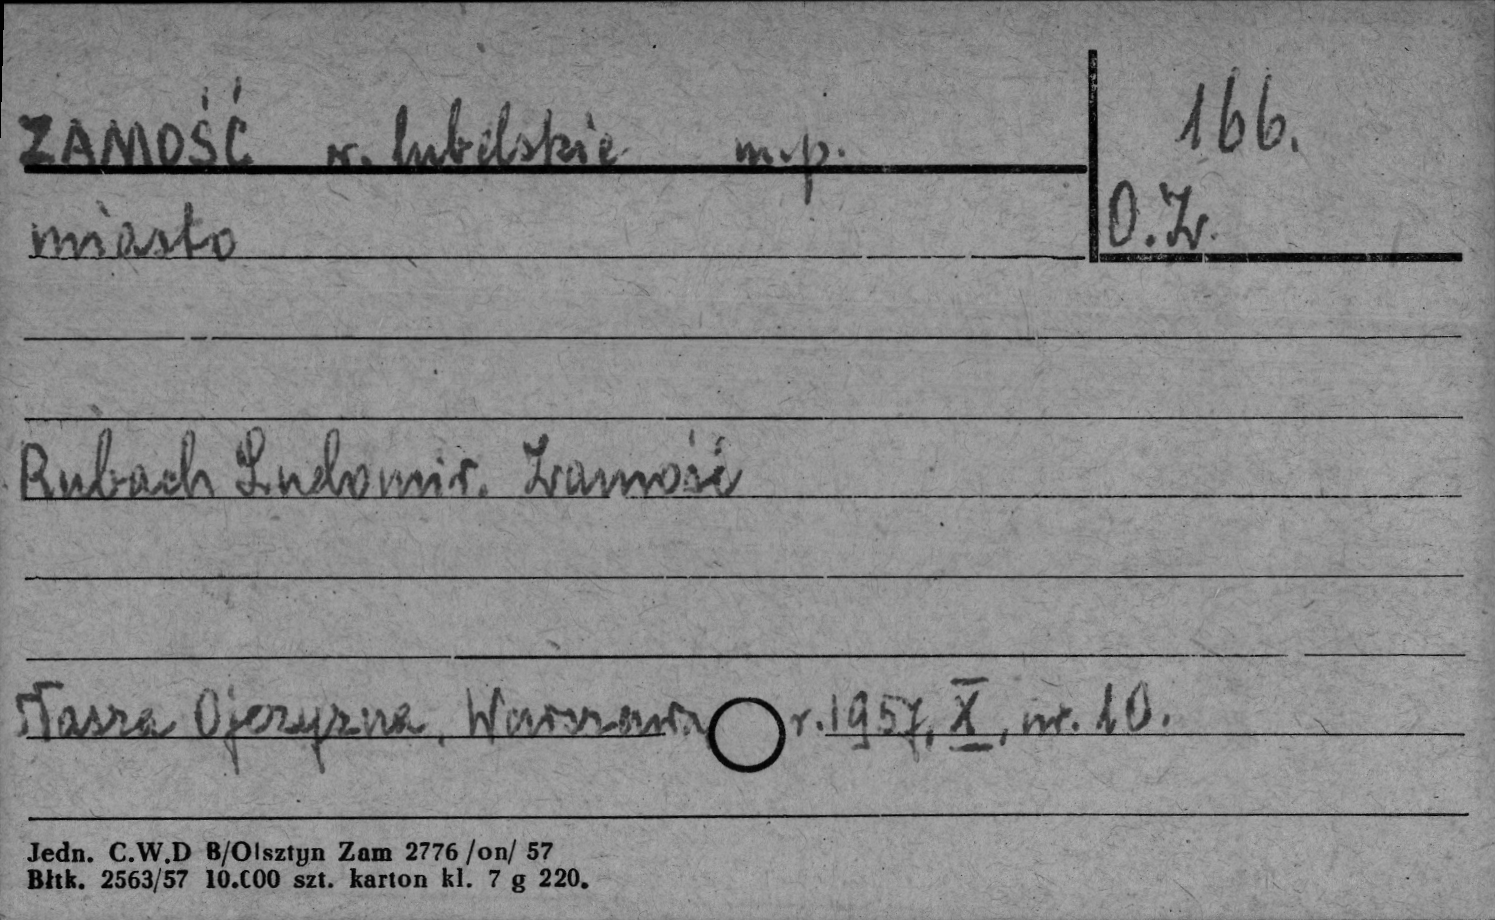 ZAMOŚĆ w. lubelskie m.p.
166.
miasto
O.Z.
Rubach Ludomir. Zamość
Nasza Ojczyzna, Warszawa r. 1957, X, nr. 10.
Jedn. C.W.D B/Olsztyn Zam 2776 /on/ 57
Błtk. 2563/57 10.000 szt. karton kl. 7 g 220.